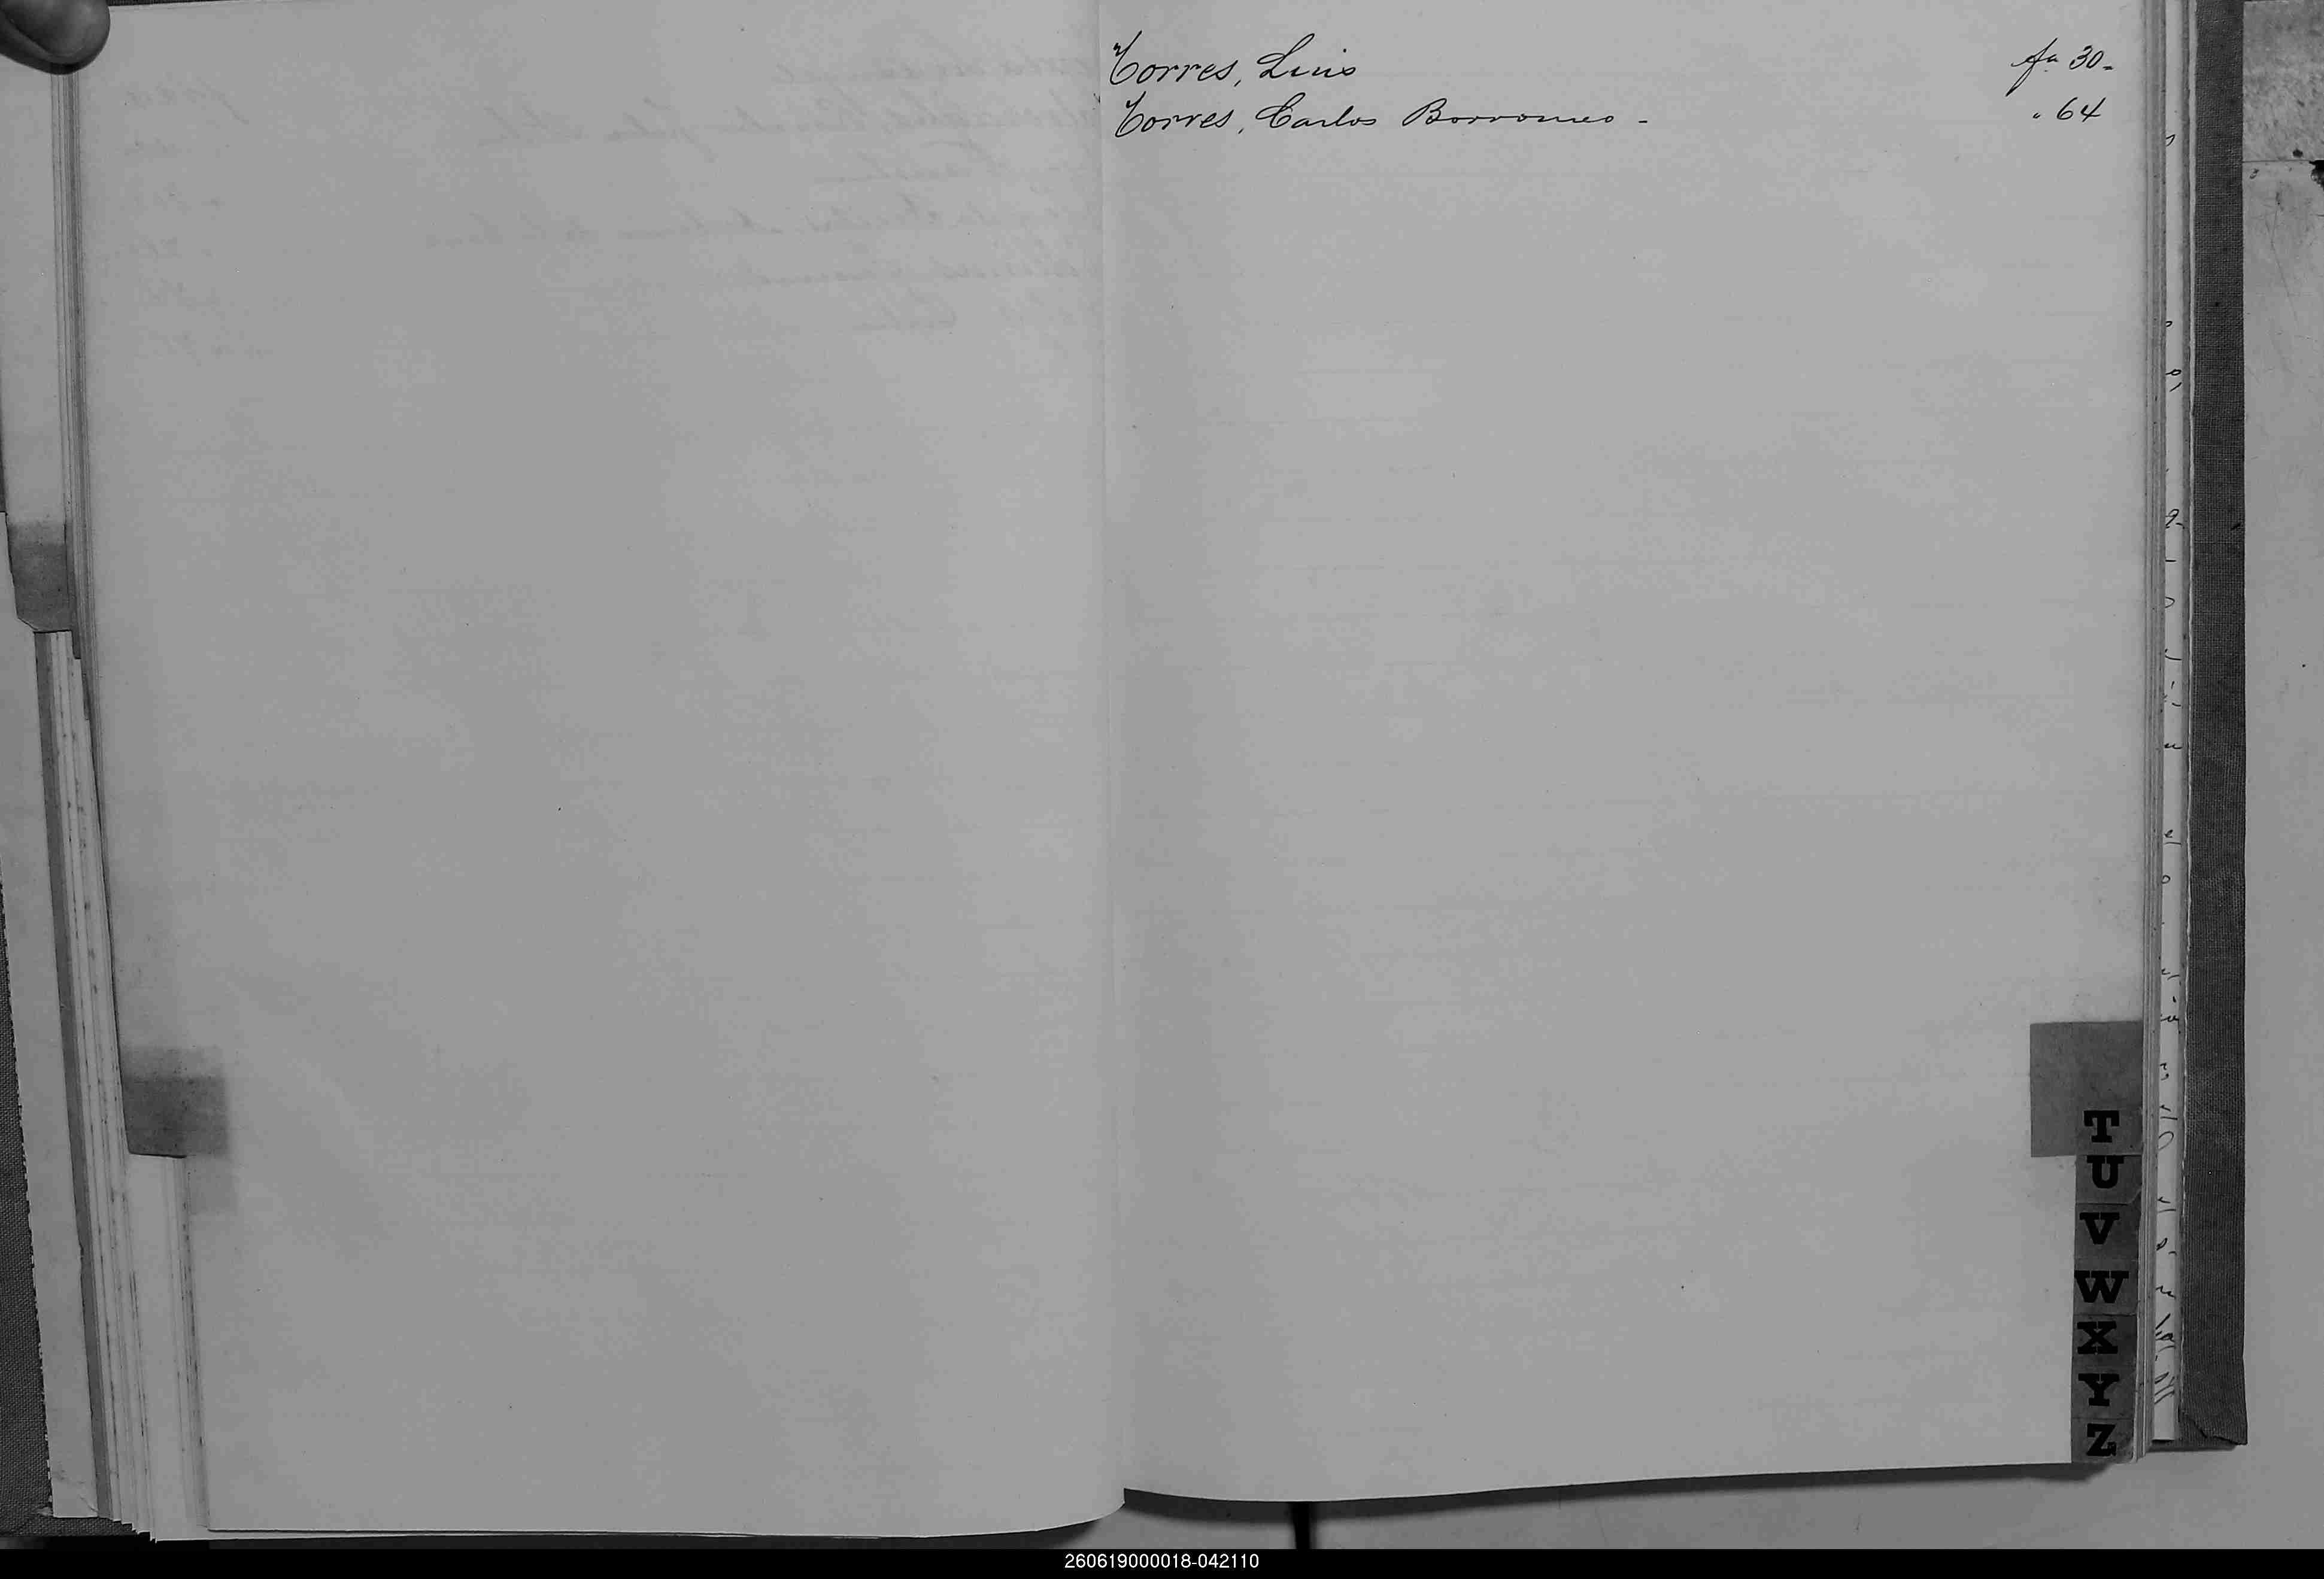 Torres, Luis fa 30-
Torres, Carlos Borromeo - " 64
T
U
V
W
X
Y
Z
260619000018-042110